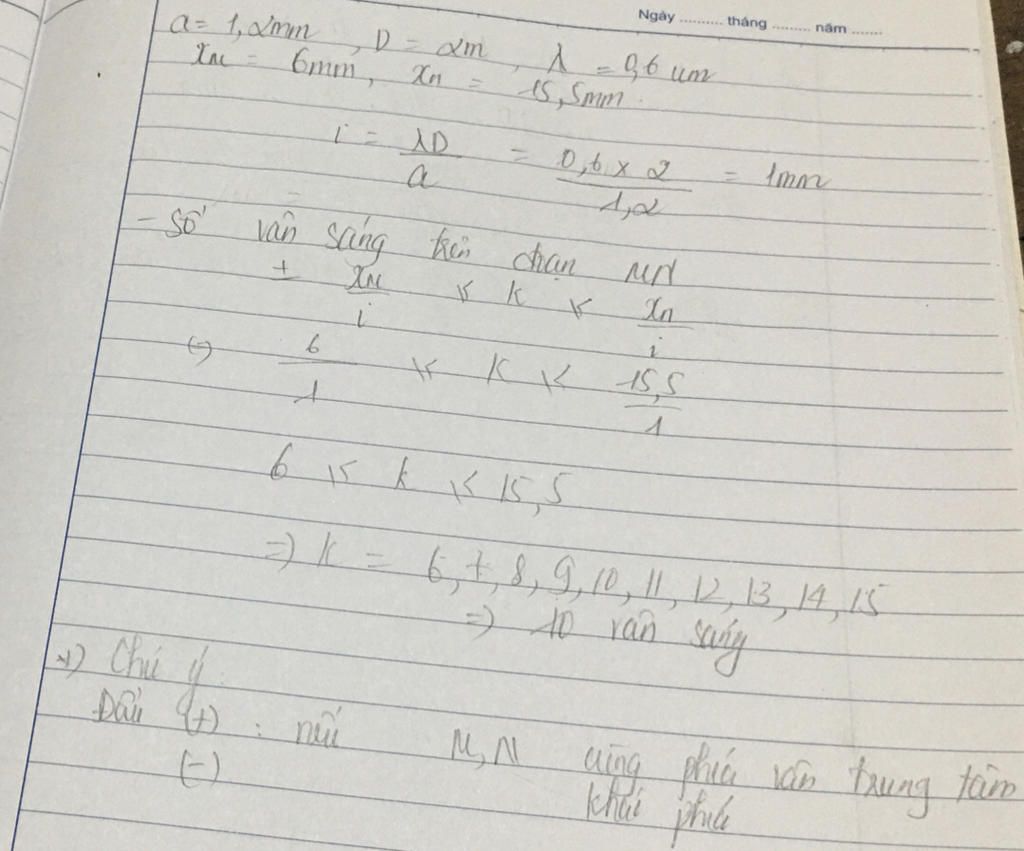 Ngày .......... tháng ......... năm .......
a = 1,2mm , D = 2m , λ = 0,6 um
xM = 6mm, xn = 15,5mm
i = λD / a = 0,6 x 2 / 1,2 = 1mm
- Số vân sáng trên đoạn MN
± xM / i ≤ k ≤ xn / i
(=) 6 / 1 ≤ k ≤ 15,5 / 1
6 ≤ k ≤ 15,5
=) k = 6, 7, 8, 9, 10, 11, 12, 13, 14, 15
=) 10 vân sáng
*) Chú ý
Dấu (+) : nếu M, N cùng phía vân trung tâm
(-) khác phía